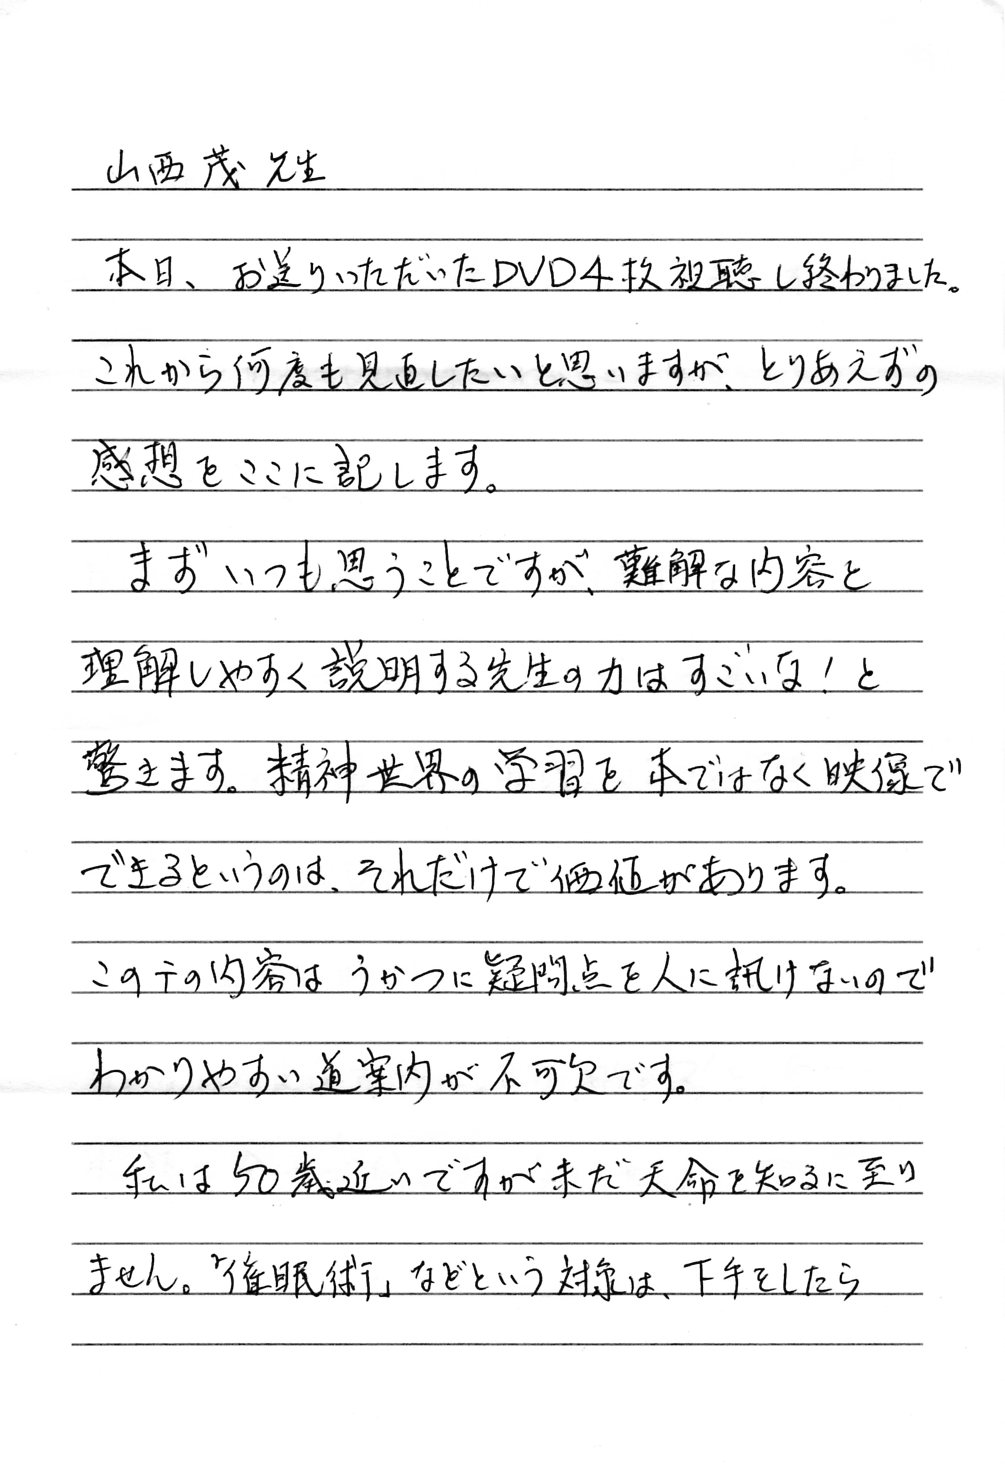 山西 茂 先生
本日、お送りいただいたDVD4枚視聴し終わりました。
これから何度も見直したいと思いますが、とりあえずの
感想をここに記します。
まずいつも思うことですが、難解な内容を
理解しやすく説明する先生の力はすごいな!と
驚きます。精神世界の学習を本ではなく映像で
できるというのは、それだけで価値があります。
このテの内容はうかつに疑問点を人に訊けないので
わかりやすい道案内が不可欠です。
私は50歳近いですが未だ天命を知るに至り
ません。「催眠術」などという対象は、下手をしたら